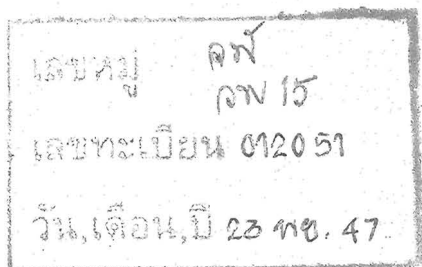 เลขหมู่ วพ
วพ 15
เลขทะเบียน 012051
วัน,เดือน,ปี 23 พย. 47